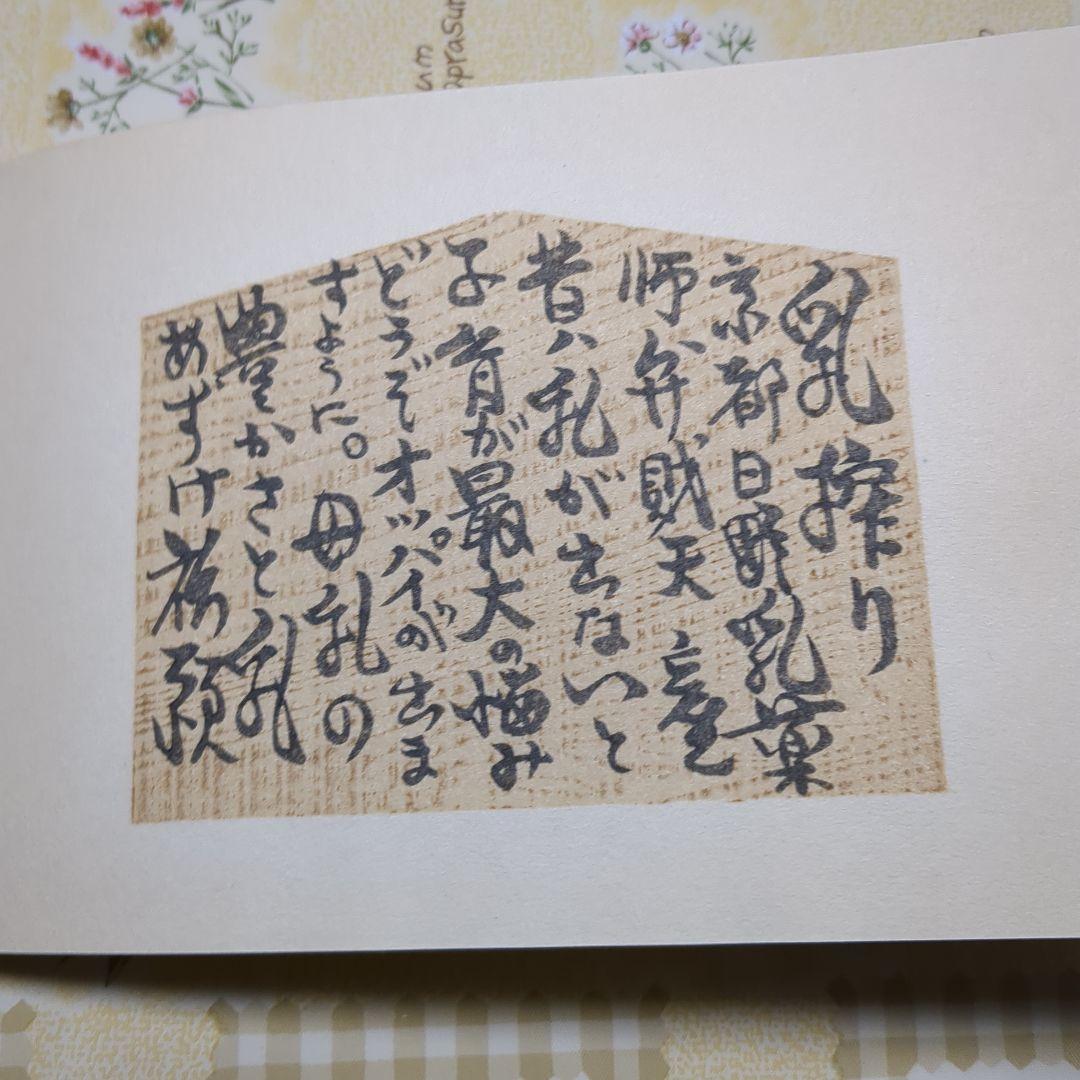 乳搾り
京都日野乳薬
師弁財天
昔ハ乳が出ないと
子育が最大の悩み
どうぞオッパイが出ま
すように。母乳の
豊かさと乳
あずけ祈願